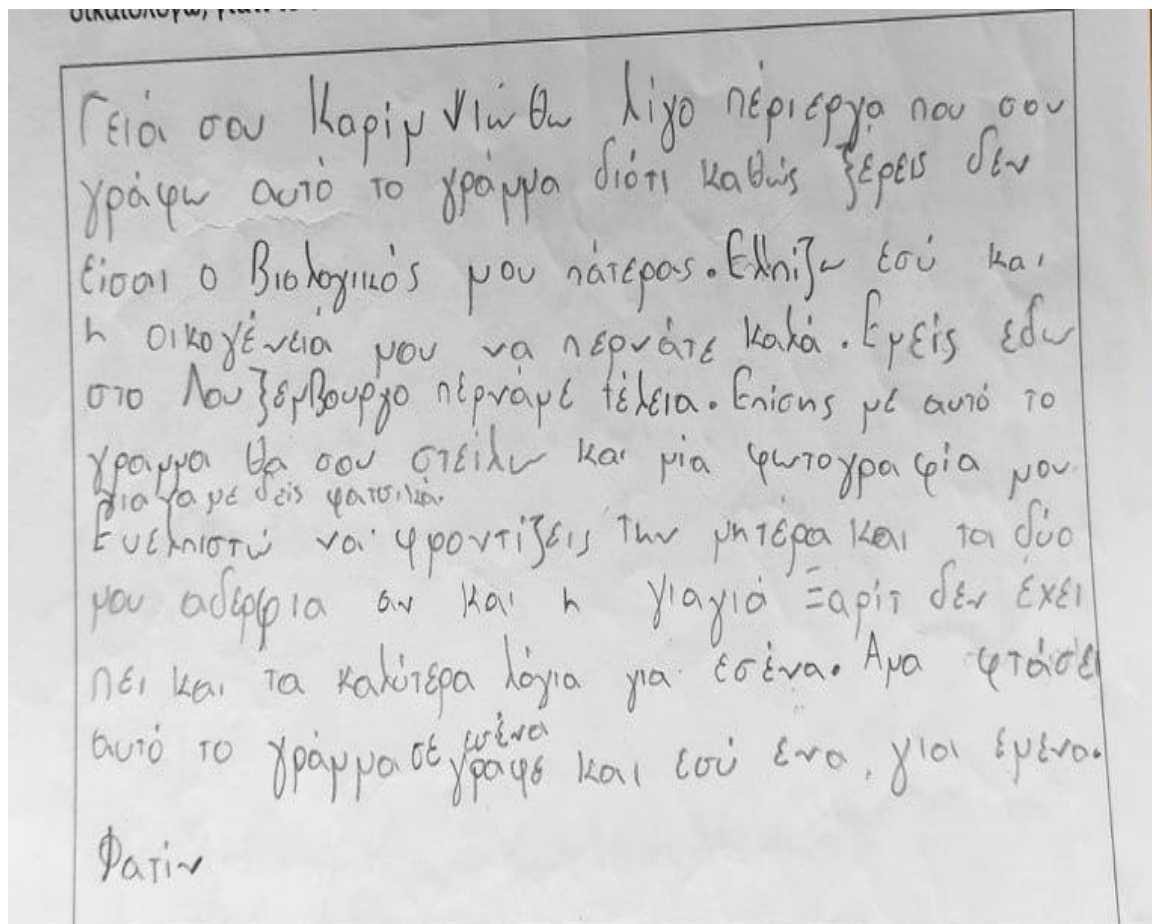 δικαιολογώ, γιατί
Γειά σου Καρίμ Νιώθω λίγο πέριεργα που σου
γράφω αυτό το γράμμα διότι καθώς ξέρεις δεν
είσαι ο Βιολογικός μου πάτερας. Ελπίζω εσύ και
η οικογένειά μου να περνάτε καλά. Εμείς εδω
στο Λουξεμβουργο πέρναμε τέλεια. Επίσης με αυτό το
γραμμα θα σου στείλω και μία φωτογραφία μου
για να με δεις φατσικά.
Ευελπιστώ να φροντίζεις την μητέρα και τα δύο
μου αδερφια αν και η γιαγιά Ξαρίτ δεν έχει
πει και τα καλύτερα λόγια για εσένα. Άμα φτάσει
αυτό το γράμμα σε εσένα
γράψε και εσύ ενα, για εμένα.
Φατίν